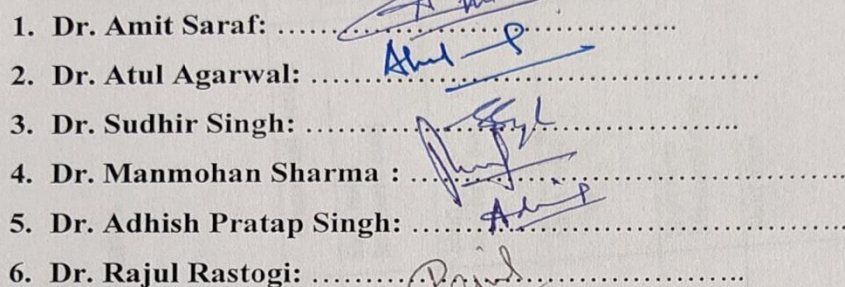 1. Dr. Amit Saraf: ..........................................
2. Dr. Atul Agarwal: ..........................................
3. Dr. Sudhir Singh: ..........................................
4. Dr. Manmohan Sharma : ..........................................
5. Dr. Adhish Pratap Singh: ..........................................
6. Dr. Rajul Rastogi: ..........................................